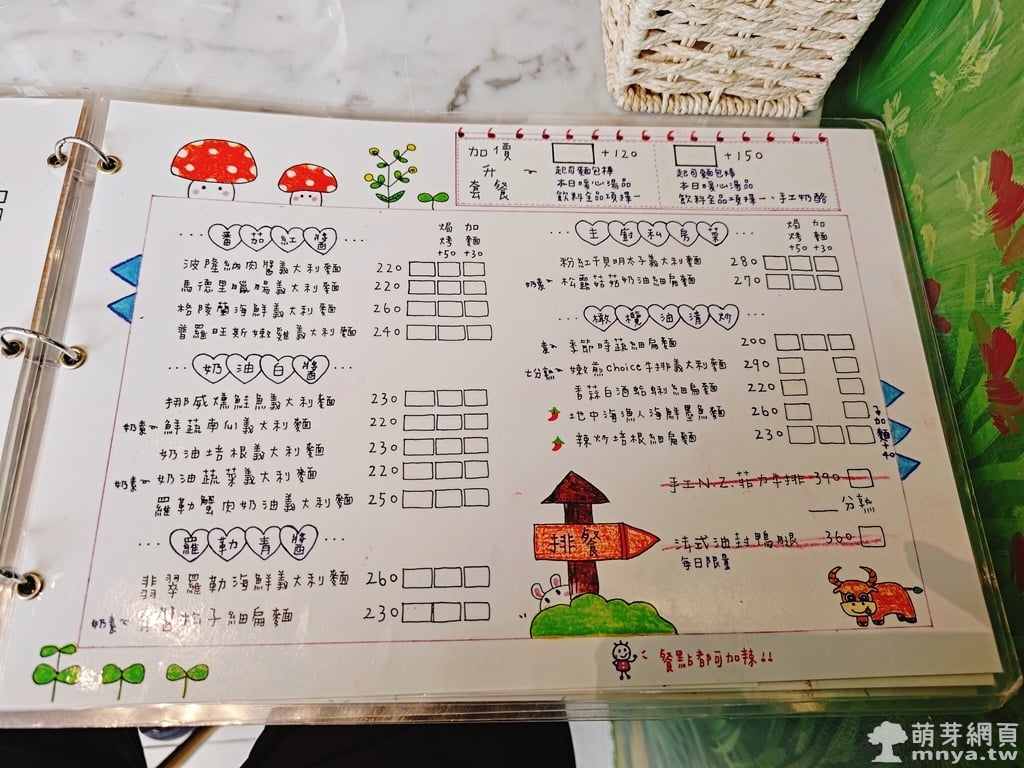 加價
升
套餐
+120
起司麵包棒
本日暖心湯品
飲料全品項擇一
+150
起司麵包棒
本日暖心湯品
飲料全品項擇一、手工奶酪
···番茄紅醬···
焗烤 +50
加麵 +30
波隆納肉醬義大利麵 220
馬德里臘腸義大利麵 220
格陵蘭海鮮義大利麵 260
普羅旺斯嫩雞義大利麵 240
···奶油白醬···
挪威燻鮭魚義大利麵 230
奶素 鮮蔬南瓜義大利麵 220
奶油培根義大利麵 230
奶素 奶油蔬菜義大利麵 220
羅勒蟹肉奶油義大利麵 250
···羅勒青醬···
翡翠羅勒海鮮義大利麵 260
奶素 青醬松子細扁麵 230
···主廚私房菜···
焗烤 +50
加麵 +30
粉紅干貝明太子義大利麵 280
奶素 松露菇菇奶油細扁麵 270
···橄欖油清炒···
素 季節時蔬細扁麵 200
七分熟 嫩煎choice牛排義大利麵 290
香蒜白酒蛤蜊細扁麵 220
地中海漁人海鮮墨魚麵 260
辣炒培根細扁麵 230
加麵+40
排餐
手工N.Z.菲力牛排 390
__分熟
法式油封鴨腿 360
每日限量
餐點都可加辣!!
萌芽網頁
mnya.tw